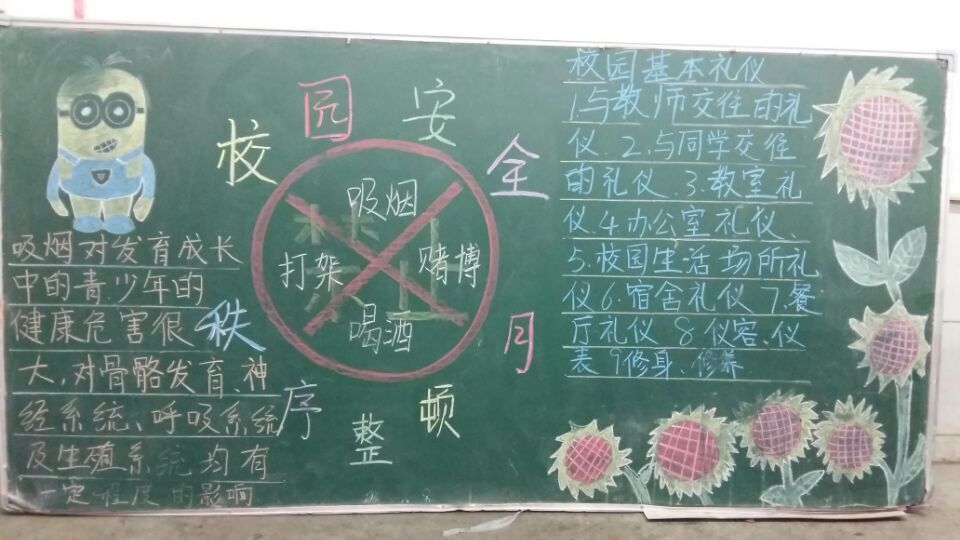 校园安全月
秩序整顿
吸烟
打架 赌博
喝酒
禁止
吸烟对发育成长
中的青.少年的
健康危害很
大,对骨骼发育、神
经系统、呼吸系统
及生殖系统均有
一定程度的影响
校园基本礼仪
1.与教师交往的礼
仪.2.与同学交往
的礼仪.3.教室礼
仪.4办公室礼仪、
5.校园生活场所礼
仪6.宿舍礼仪7.餐
厅礼仪 8仪容、仪
表 9修身、修养